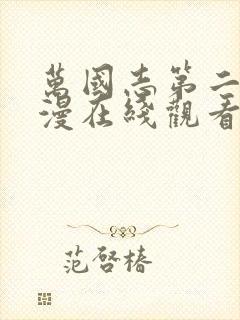 萬國志第二
漫在綫觀看
范啓椿